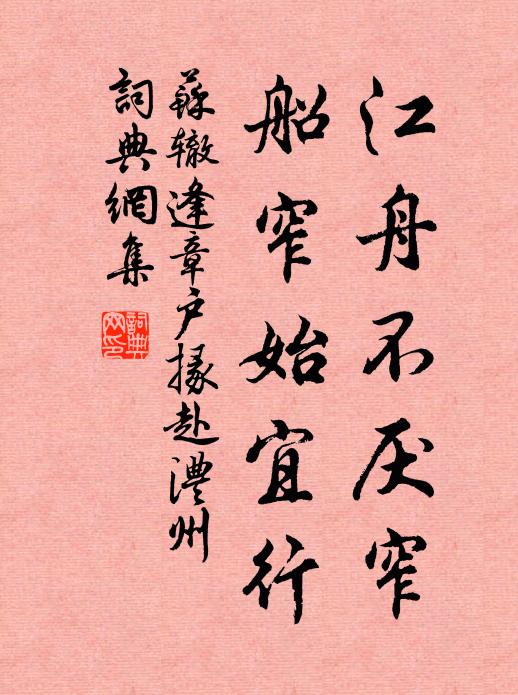 江舟不厌窄
船窄始宜行
蘇辙逢章户掾赴澧州
詞典網集
詞典网印